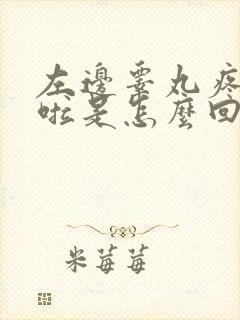 左邊睾丸疼
啦是怎麼回
米莓莓